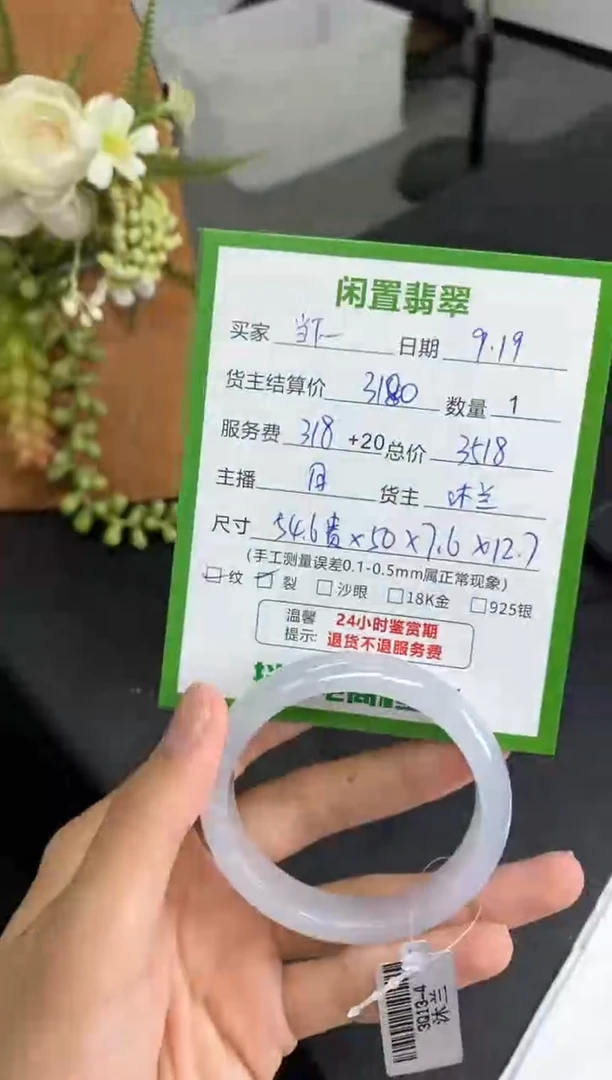 闲置翡翠
买家 当下一 日期 9.19
货主结算价 3180 数量 1
服务费 318 +20 总价 3518
主播 月 货主 沐兰
尺寸 54.6贵×50×7.6×12.7
(手工测量误差0.1-0.5mm属正常现象)
纹 裂 沙眼 18K金 925银
温馨 24小时鉴赏期
提示: 退货不退服务费
3Q13-4
沐兰